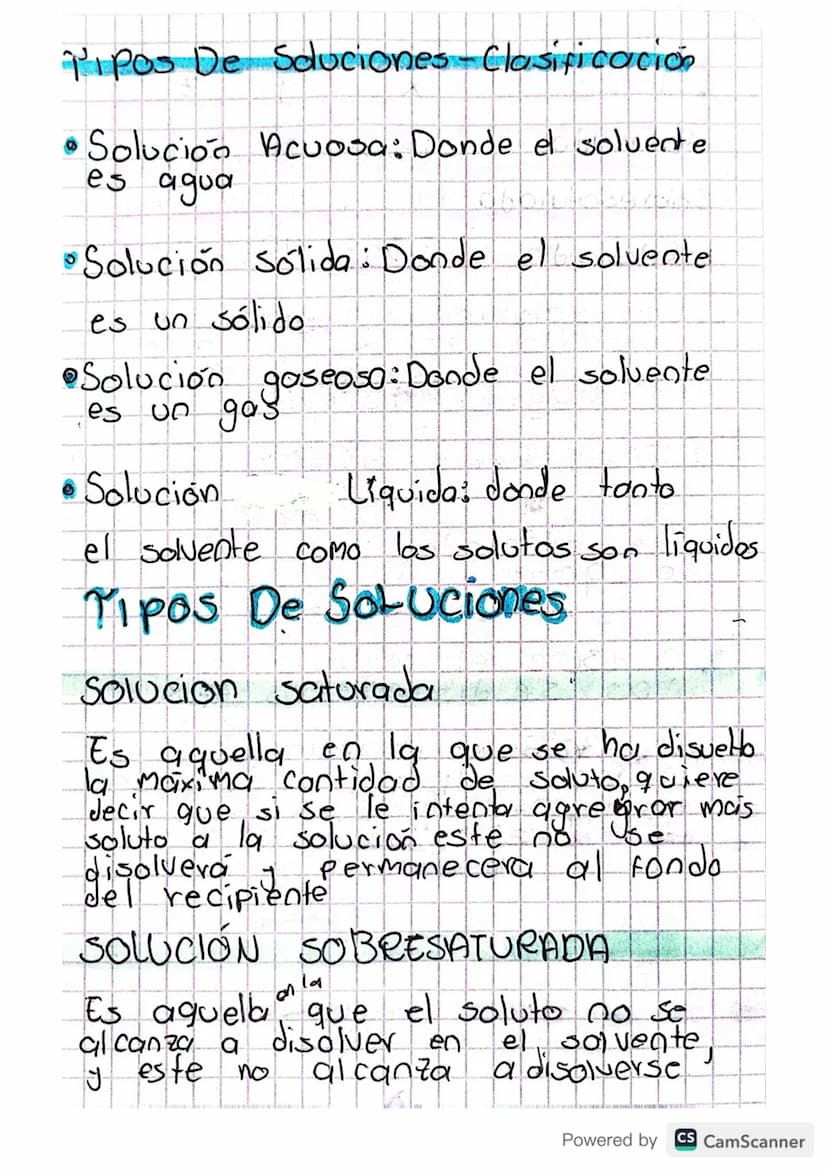 Tipos De Soluciones - Clasificación
• Solución Acuosa: Donde el solvente
es agua
• Solución sólida: Donde el solvente
es un sólido
• Solución gaseosa: Donde el solvente
es un gas
• Solución Líquida: donde tanto
el solvente como los solutos son líquidos
Tipos De Soluciones
solucion saturada
Es aquella en la que se ha disuelto
la máxima cantidad de soluto, quiere
decir que si se le intenta agregrar más
soluto a la solución este no se
disolverá y permanecera al fondo
del recipiente
SOLUCIÓN SOBRESATURADA
Es aquella en la que el soluto no se
alcanza a disolver en el solvente,
y este no alcanza a disolverse
Powered by CS CamScanner